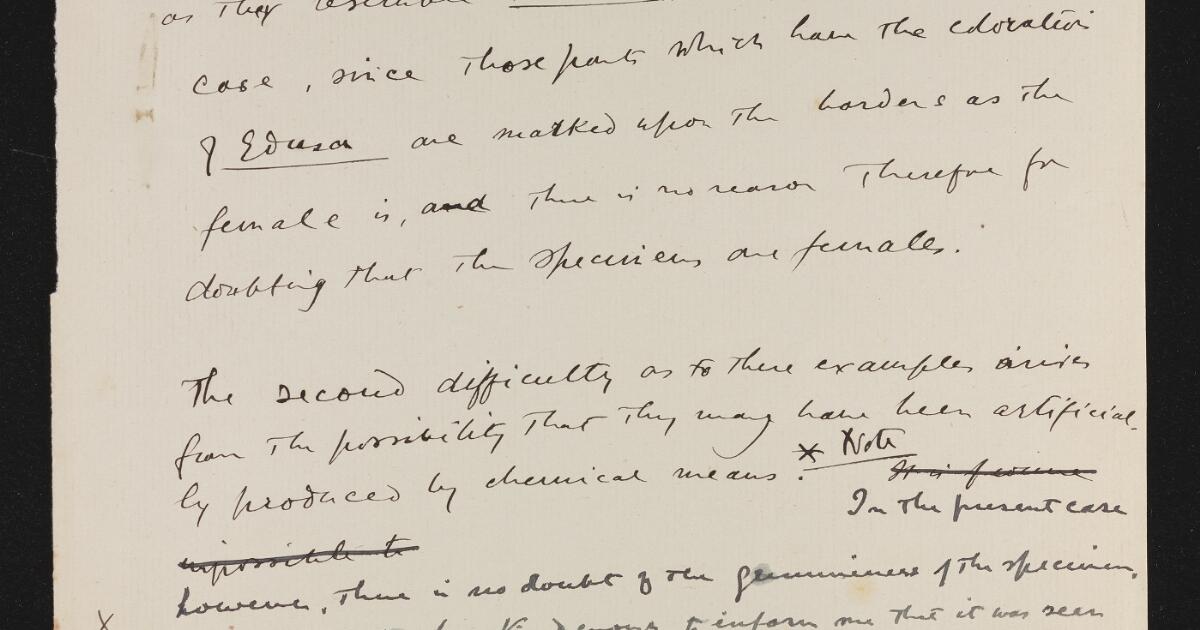 as they resemble
case, since those parts which have the coloration
of Edusa are marked upon the borders as the
female is, and there is no reason therefore for
doubting that the specimens are females.
The second difficulty as to these examples arises
from the possibility that they may have been artificial-
ly produced by chemical means. x Note
It is of course
In the present case
impossible to
however, there is no doubt of the genuineness of the specimen,
to inform me that it was seen